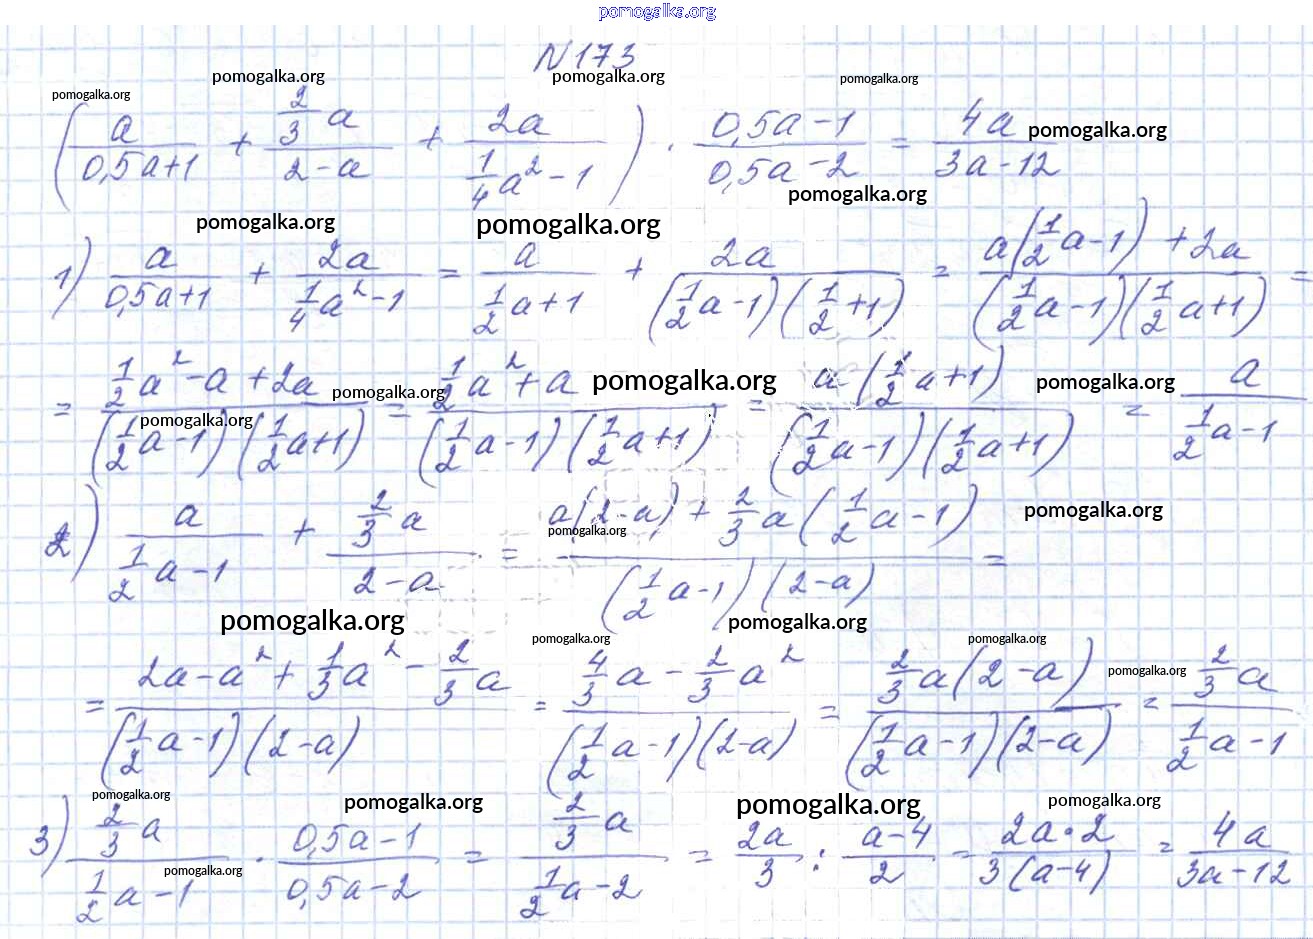 pomogalka.org
N173
pomogalka.org pomogalka.org pomogalka.org pomogalka.org
(a/(0,5a+1) + (2/3 a)/(2-a) + 2a/(1/4 a² - 1)) · (0,5a-1)/(0,5a-2) = 4a/(3a-12) pomogalka.org
pomogalka.org
pomogalka.org pomogalka.org
1) a/(0,5a+1) + 2a/(1/4 a² - 1) = a/(1/2 a+1) + 2a/((1/2 a-1)(1/2+1)) = (a(1/2 a-1)+2a)/((1/2 a-1)(1/2 a+1)) =
= (1/2 a² - a + 2a)/((1/2 a-1)(1/2 a+1)) = (1/2 a² + a)/((1/2 a-1)(1/2 a+1)) = a(1/2 a+1)/((1/2 a-1)(1/2 a+1)) = a/(1/2 a-1)
pomogalka.org pomogalka.org pomogalka.org
pomogalka.org
2) a/(1/2 a-1) + (2/3 a)/(2-a) = (a(2-a) + 2/3 a(1/2 a-1))/((1/2 a-1)(2-a)) =
pomogalka.org pomogalka.org
pomogalka.org pomogalka.org
pomogalka.org pomogalka.org
= (2a-a² + 1/3 a² - 2/3 a)/((1/2 a-1)(2-a)) = (4/3 a - 2/3 a²)/((1/2 a-1)(2-a)) = (2/3 a(2-a))/((1/2 a-1)(2-a)) = (2/3 a)/(1/2 a-1)
pomogalka.org
pomogalka.org pomogalka.org pomogalka.org pomogalka.org
3) (2/3 a)/(1/2 a-1) · (0,5a-1)/(0,5a-2) = (2/3 a)/(1/2 a-2) = 2a/3 : (a-4)/2 = (2a·2)/(3(a-4)) = 4a/(3a-12)
pomogalka.org